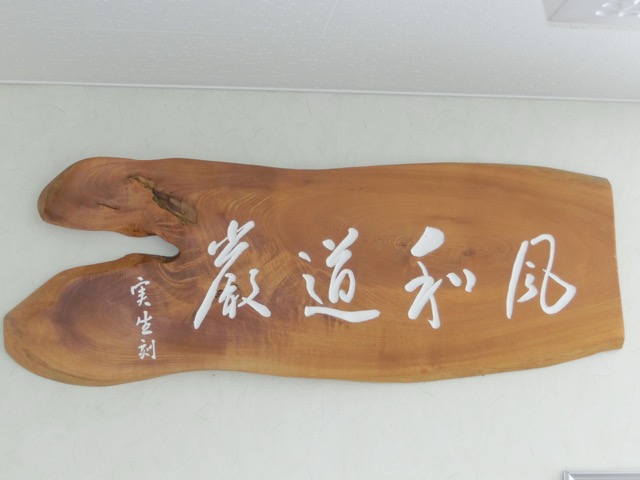 風和道厳
実生刻